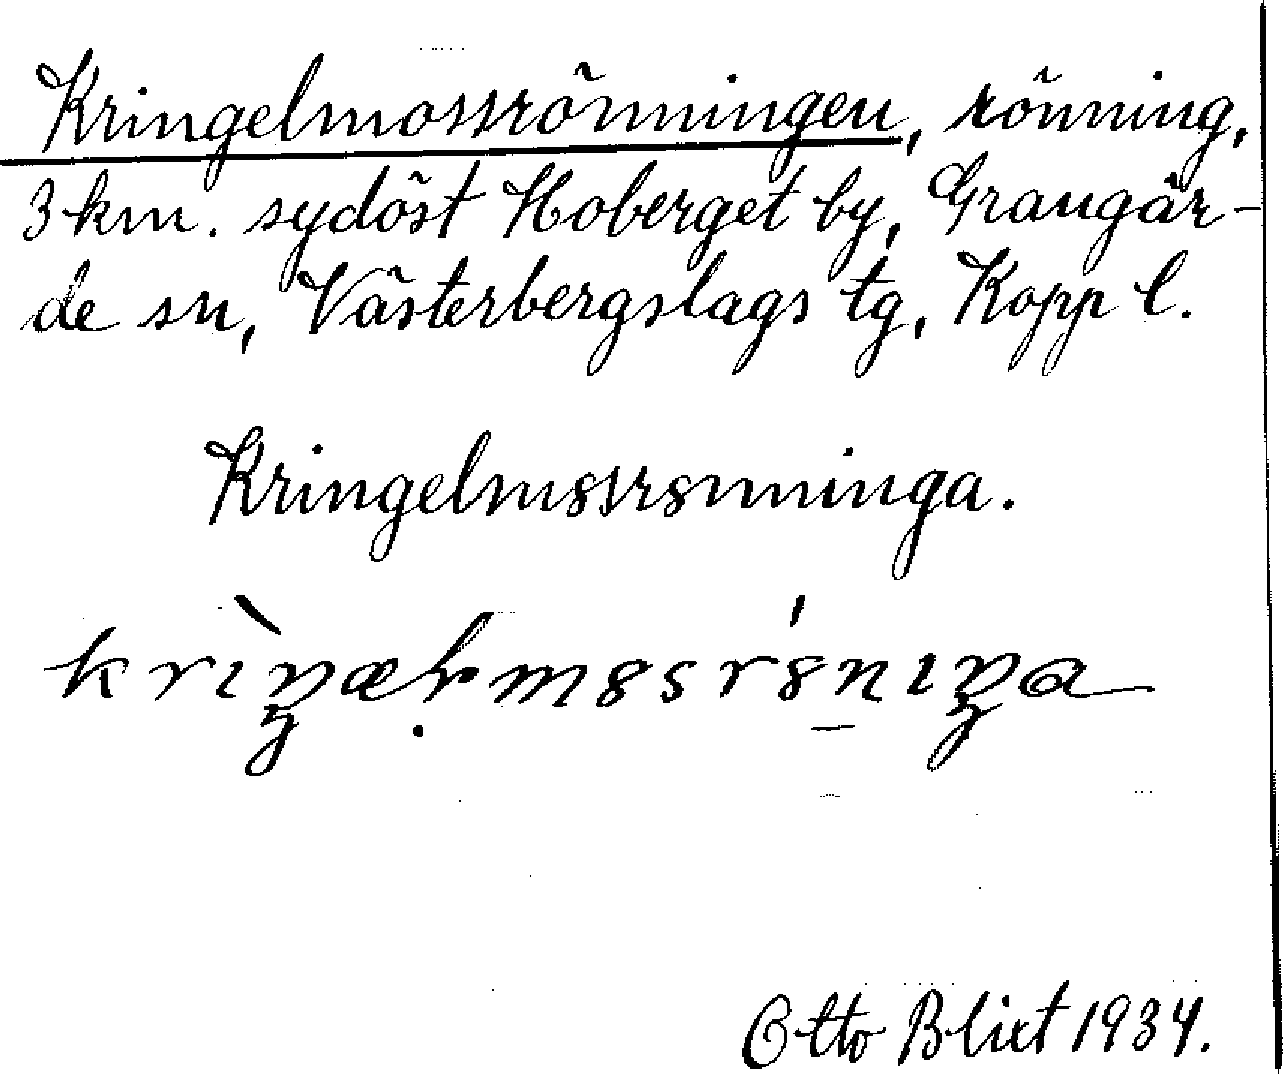 Kringelmossrönningen, rönning,
3 km. sydöst Hoberget by, Grangär-
de sn, Västerbergslags tg, Kopp l.
Kringelm8ssr8nninga.
Otto Blixt 1934.